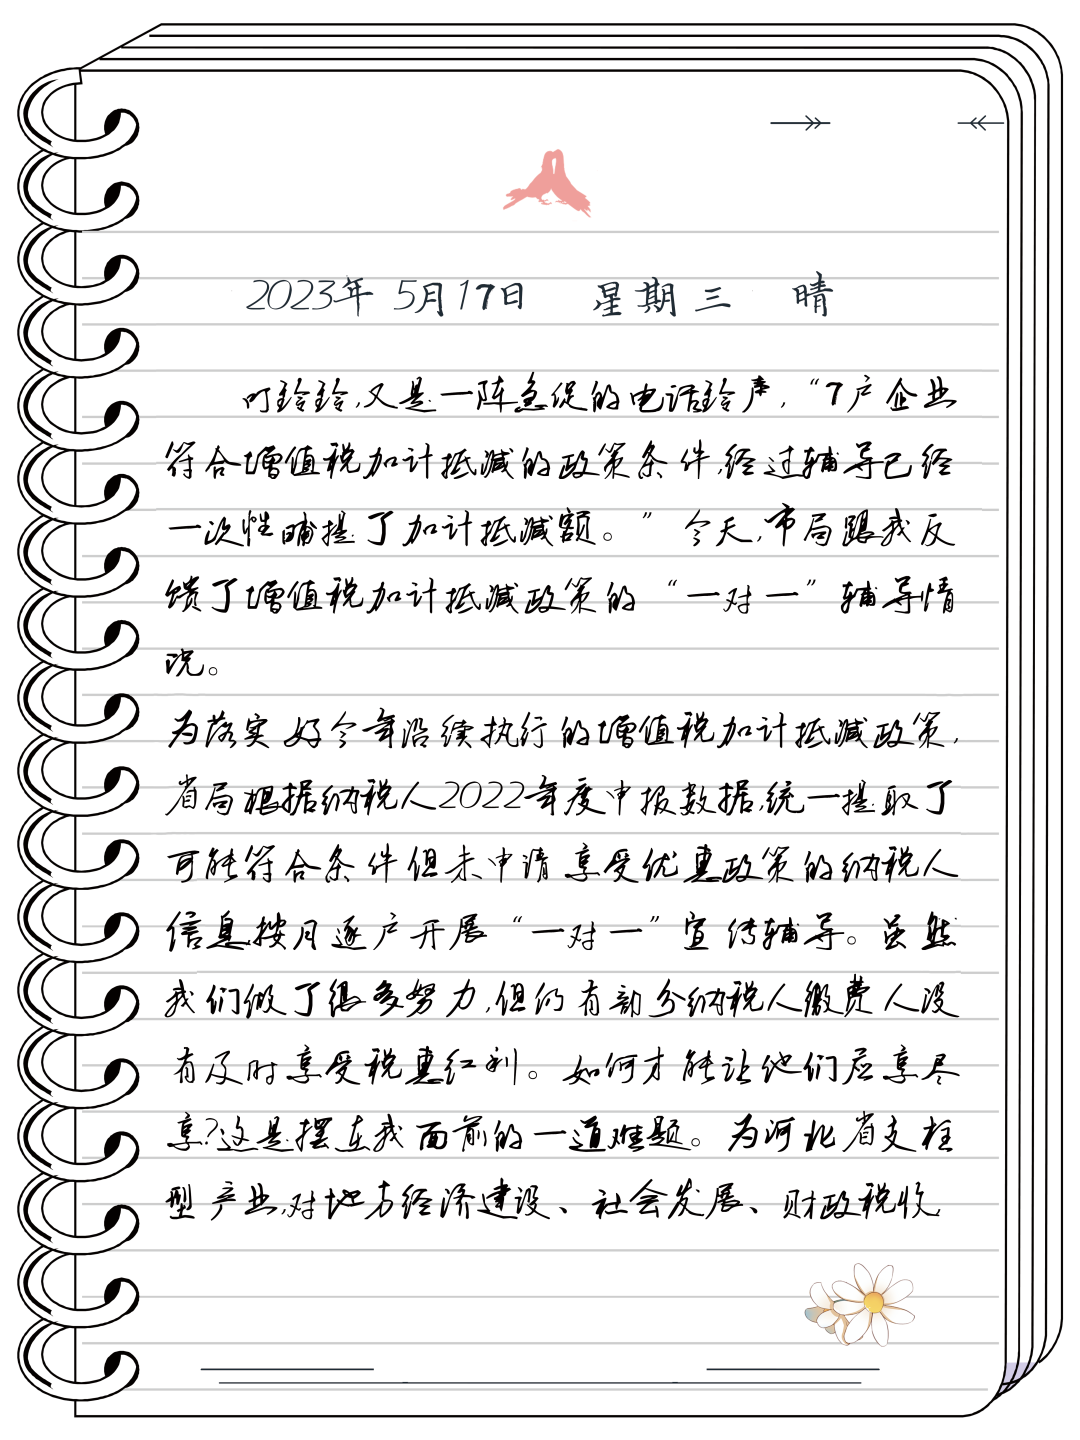 2023年 5月17日 星期三 晴
叮铃铃,又是一阵急促的电话铃声,“7户企业
符合增值税加计抵减的政策条件,经过辅导已经
一次性晡提了加计抵减额。” 今天,市局跟我反
馈了增值税加计抵减政策的“一对一”辅导情
况。
为落实好今年沿续执行的增值税加计抵减政策,
省局根据纳税人2022年度申报数据,统一提取了
可能符合条件但未申请享受优惠政策的纳税人
信息,按月逐户开展“一对一”宣传辅导。虽然
我们做了很多努力,但仍有部分纳税人缴费人没
有及时享受税惠红利。如何才能让他们应享尽
享?这是摆在我面前的一道难题。为河北省支柱
型产业,对地方经济建设、社会发展、财政税收